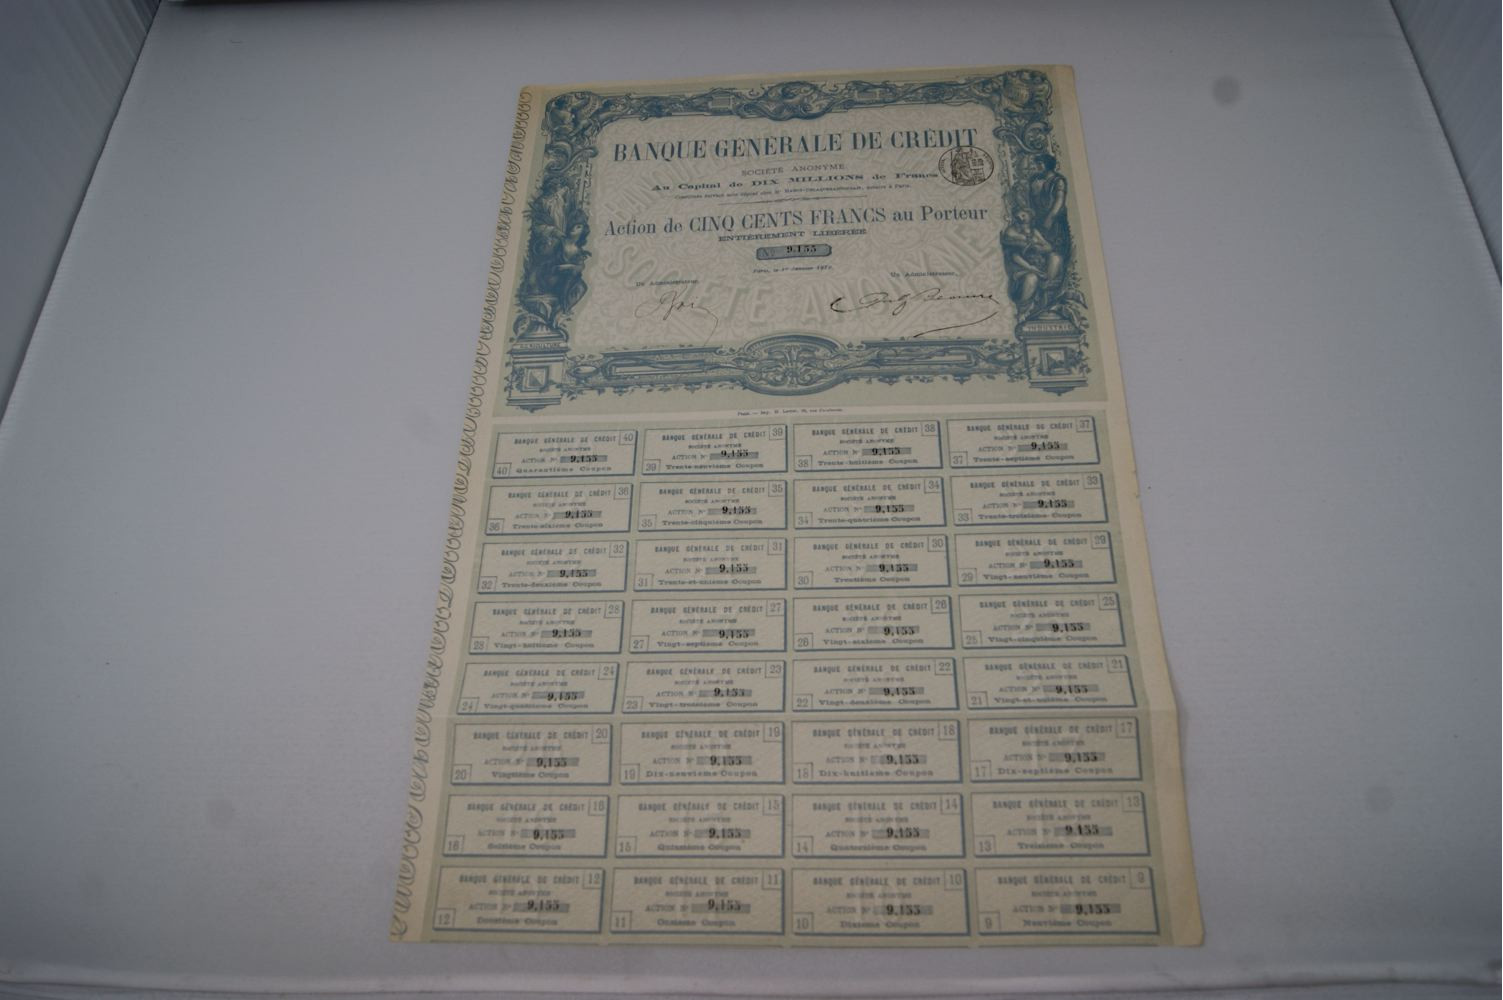 BANQUE GÉNÉRALE DE CRÉDIT
SOCIÉTÉ ANONYME
Au Capital de DIX MILLIONS de Francs
Action de CINQ CENTS FRANCS au Porteur
ENTIÈREMENT LIBÉRÉE
No 9,155
Paris, le 1er Janvier
Un Administrateur,
Un Administrateur,
SOCIÉTÉ ANONYME
AGRICULTURE
INDUSTRIE
BANQUE GÉNÉRALE DE CRÉDIT 40
SOCIÉTÉ ANONYME
ACTION No 9,155
40 Quarantième Coupon
BANQUE GÉNÉRALE DE CRÉDIT 39
SOCIÉTÉ ANONYME
ACTION No 9,155
39 Trente-neuvième Coupon
BANQUE GÉNÉRALE DE CRÉDIT 38
SOCIÉTÉ ANONYME
ACTION No 9,155
38 Trente-huitième Coupon
BANQUE GÉNÉRALE DE CRÉDIT 37
SOCIÉTÉ ANONYME
ACTION No 9,155
37 Trente-septième Coupon
BANQUE GÉNÉRALE DE CRÉDIT 36
SOCIÉTÉ ANONYME
ACTION No 9,155
36 Trente-sixième Coupon
BANQUE GÉNÉRALE DE CRÉDIT 35
SOCIÉTÉ ANONYME
ACTION No 9,155
35 Trente-cinquième Coupon
BANQUE GÉNÉRALE DE CRÉDIT 34
SOCIÉTÉ ANONYME
ACTION No 9,155
34 Trente-quatrième Coupon
BANQUE GÉNÉRALE DE CRÉDIT 33
SOCIÉTÉ ANONYME
ACTION No 9,155
33 Trente-troisième Coupon
BANQUE GÉNÉRALE DE CRÉDIT 32
SOCIÉTÉ ANONYME
ACTION No 9,155
32 Trente-deuxième Coupon
BANQUE GÉNÉRALE DE CRÉDIT 31
SOCIÉTÉ ANONYME
ACTION No 9,155
31 Trente-et-unième Coupon
BANQUE GÉNÉRALE DE CRÉDIT 30
SOCIÉTÉ ANONYME
ACTION No 9,155
30 Trentième Coupon
BANQUE GÉNÉRALE DE CRÉDIT 29
SOCIÉTÉ ANONYME
ACTION No 9,155
29 Vingt-neuvième Coupon
BANQUE GÉNÉRALE DE CRÉDIT 28
SOCIÉTÉ ANONYME
ACTION No 9,155
28 Vingt-huitième Coupon
BANQUE GÉNÉRALE DE CRÉDIT 27
SOCIÉTÉ ANONYME
ACTION No 9,155
27 Vingt-septième Coupon
BANQUE GÉNÉRALE DE CRÉDIT 26
SOCIÉTÉ ANONYME
ACTION No 9,155
26 Vingt-sixième Coupon
BANQUE GÉNÉRALE DE CRÉDIT 25
SOCIÉTÉ ANONYME
ACTION No 9,155
25 Vingt-cinquième Coupon
BANQUE GÉNÉRALE DE CRÉDIT 24
SOCIÉTÉ ANONYME
ACTION No 9,155
24 Vingt-quatrième Coupon
BANQUE GÉNÉRALE DE CRÉDIT 23
SOCIÉTÉ ANONYME
ACTION No 9,155
23 Vingt-troisième Coupon
BANQUE GÉNÉRALE DE CRÉDIT 22
SOCIÉTÉ ANONYME
ACTION No 9,155
22 Vingt-deuxième Coupon
BANQUE GÉNÉRALE DE CRÉDIT 21
SOCIÉTÉ ANONYME
ACTION No 9,155
21 Vingt-et-unième Coupon
BANQUE GÉNÉRALE DE CRÉDIT 20
SOCIÉTÉ ANONYME
ACTION No 9,155
20 Vingtième Coupon
BANQUE GÉNÉRALE DE CRÉDIT 19
SOCIÉTÉ ANONYME
ACTION No 9,155
19 Dix-neuvième Coupon
BANQUE GÉNÉRALE DE CRÉDIT 18
SOCIÉTÉ ANONYME
ACTION No 9,155
18 Dix-huitième Coupon
BANQUE GÉNÉRALE DE CRÉDIT 17
SOCIÉTÉ ANONYME
ACTION No 9,155
17 Dix-septième Coupon
BANQUE GÉNÉRALE DE CRÉDIT 16
SOCIÉTÉ ANONYME
ACTION No 9,155
16 Seizième Coupon
BANQUE GÉNÉRALE DE CRÉDIT 15
SOCIÉTÉ ANONYME
ACTION No 9,155
15 Quinzième Coupon
BANQUE GÉNÉRALE DE CRÉDIT 14
SOCIÉTÉ ANONYME
ACTION No 9,155
14 Quatorzième Coupon
BANQUE GÉNÉRALE DE CRÉDIT 13
SOCIÉTÉ ANONYME
ACTION No 9,155
13 Treizième Coupon
BANQUE GÉNÉRALE DE CRÉDIT 12
SOCIÉTÉ ANONYME
ACTION No 9,155
12 Douzième Coupon
BANQUE GÉNÉRALE DE CRÉDIT 11
SOCIÉTÉ ANONYME
ACTION No 9,155
11 Onzième Coupon
BANQUE GÉNÉRALE DE CRÉDIT 10
SOCIÉTÉ ANONYME
ACTION No 9,155
10 Dixième Coupon
BANQUE GÉNÉRALE DE CRÉDIT 9
SOCIÉTÉ ANONYME
ACTION No 9,155
9 Neuvième Coupon